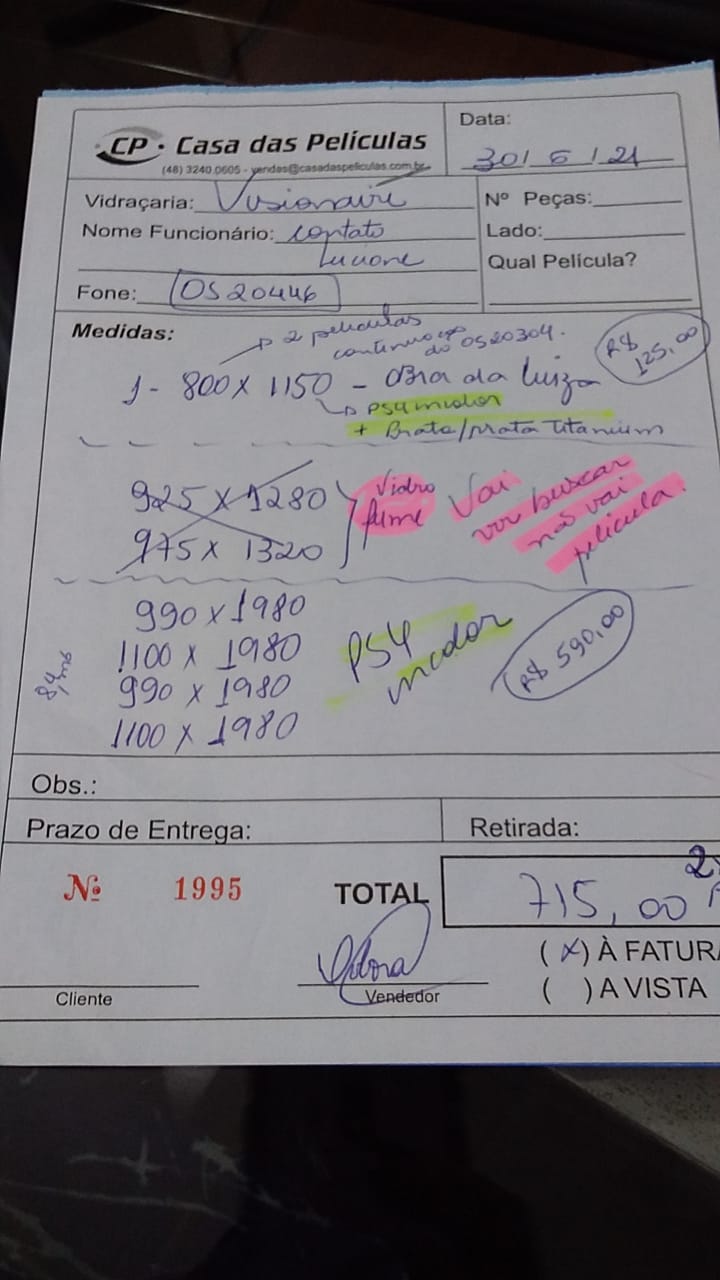 CP • Casa das Películas
(48) 3240.0605 - vendas@casadaspeliculas.com.br
Data:
30/ 6 / 21
Vidraçaria: Visionaire
Nome Funcionário: contato
Luciane
Fone: OS 20446
Nº Peças:
Lado:
Qual Película?
Medidas:
2 películas
continuação
do OS20304.
R$ 125,00
1 - 800 x 1150 - Obra da Luiza
PS4 incolor
+ Prata/prata titanium
925 x 1280
975 x 1320
Vidro
fume
Vai
vir buscar
não vai
película.
990 x 1980
1100 x 1980
990 x 1980
1100 x 1980
PS4
incolor
R$ 590,00
Obs.:
Prazo de Entrega:
Retirada:
Nº 1995
TOTAL
715,00
(X) À FATURA
( ) A VISTA
Cliente
Vendedor